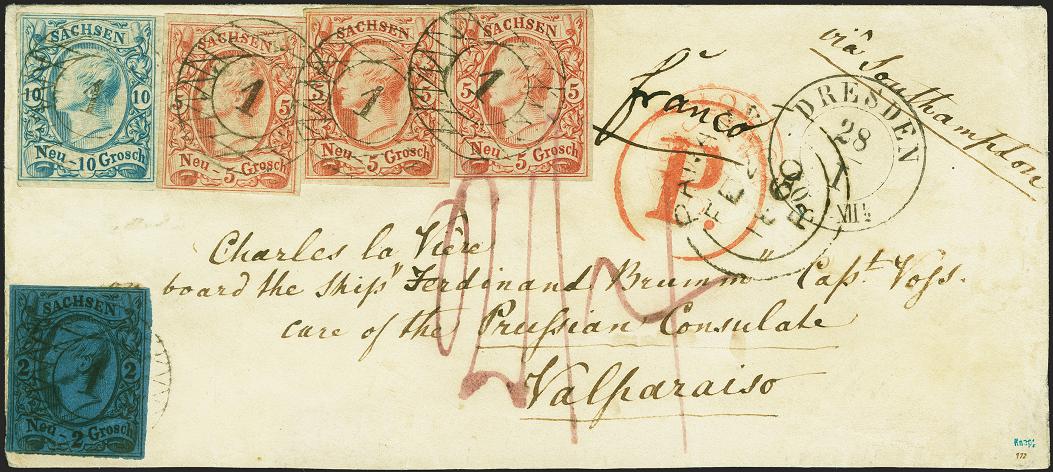 SACHSEN
10 10
1
Neu-10 Grosch
SACHSEN
5 5
1
Neu-5 Grosch
SACHSEN
5 5
1
Neu-5 Grosch
SACHSEN
5 5
1
Neu-5 Grosch
viâ Southampton
franco
P.
PANAMA
DRESDEN
28
I
60
XII½
Charles la Vière
on board the ship "Ferdinand Brumm" Capt. Voss.
care of the Prussian Consulate
Valparaiso
SACHSEN
2 2
1
Neu-2 Grosch